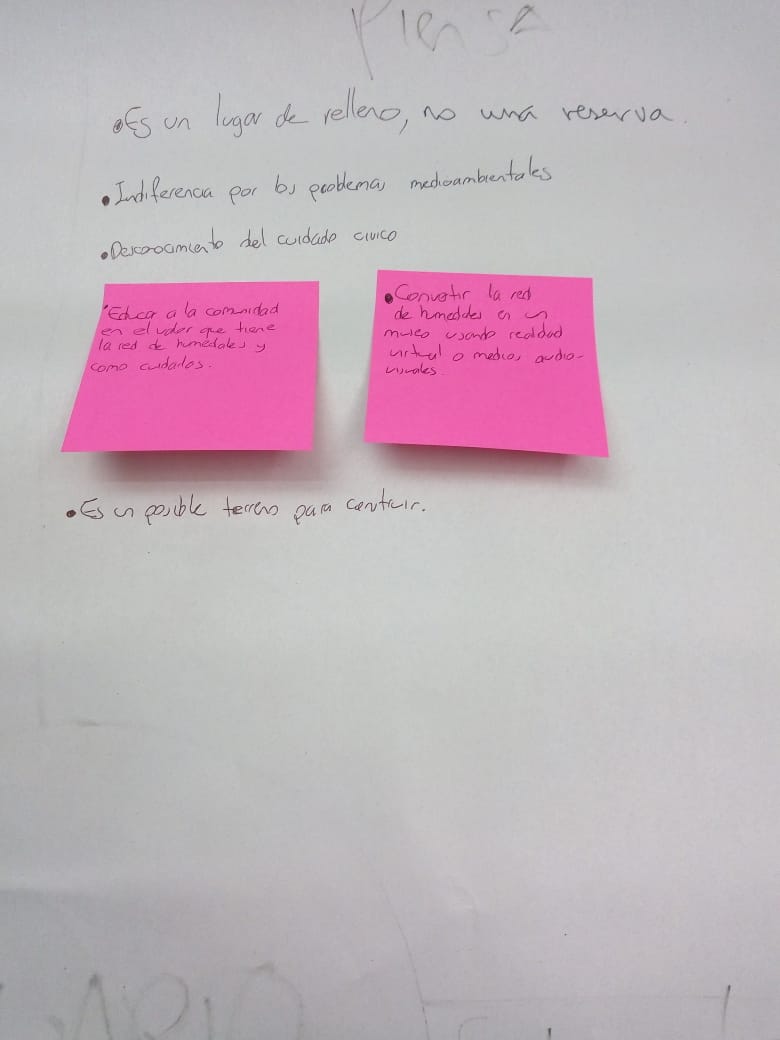 Piensa
• Es un lugar de relleno, no una reserva.
• Indiferencia por los problemas medioambientales
• Desconocimiento del cuidado civico
• Educar a la comunidad
en el valor que tiene
la red de humedales y
como cuidarlos.
• Convertir la red
de humedales en un
museo usando realidad
virtual o medios audio-
visuales.
• Es un posible terreno para construir.